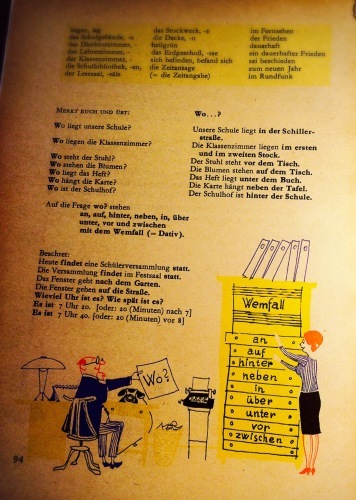 liegen, lag
das Schulgebäude, -n
das Direktorzimmer, -
das Lehrerzimmer, -
das Klassenzimmer, -
die Schulbibliothek, -en,
der Lesesaal, -säle
das Stockwerk, -e
die Decke, -n
hellgrün
das Erdgeschoß, -sse
sich befinden, befand sich
die Zeitansage
(= die Zeitangabe)
im Fernsehen
der Frieden
dauerhaft
ein dauerhafter Frieden
sei beschieden
zum neuen Jahr
im Rundfunk
MERKT EUCH UND ÜBT:
Wo liegt unsere Schule?
Wo liegen die Klassenzimmer?
Wo steht der Stuhl?
Wo stehen die Blumen?
Wo liegt das Heft?
Wo hängt die Karte?
Wo ist der Schulhof?
Wo...?
Unsere Schule liegt in der Schiller-
straße.
Die Klassenzimmer liegen im ersten
und im zweiten Stock.
Der Stuhl steht vor dem Tisch.
Die Blumen stehen auf dem Tisch.
Das Heft liegt unter dem Buch.
Die Karte hängt neben der Tafel.
Der Schulhof ist hinter der Schule.
Auf die Frage wo? stehen
an, auf, hinter, neben, in, über
unter, vor und zwischen
mit dem Wemfall (= Dativ).
BEACHTET:
Heute findet eine Schülerversammlung statt.
Die Versammlung findet im Festsaal statt.
Das Fenster geht nach dem Garten.
Die Fenster gehen auf die Straße.
Wieviel Uhr ist es? Wie spät ist es?
Es ist 7 Uhr 20. [oder: 20 (Minuten) nach 7]
Es ist 7 Uhr 40. [oder: 20 (Minuten) vor 8]
Wo?
Wemfall
an
auf
hinter
neben
in
über
unter
vor
zwischen
94